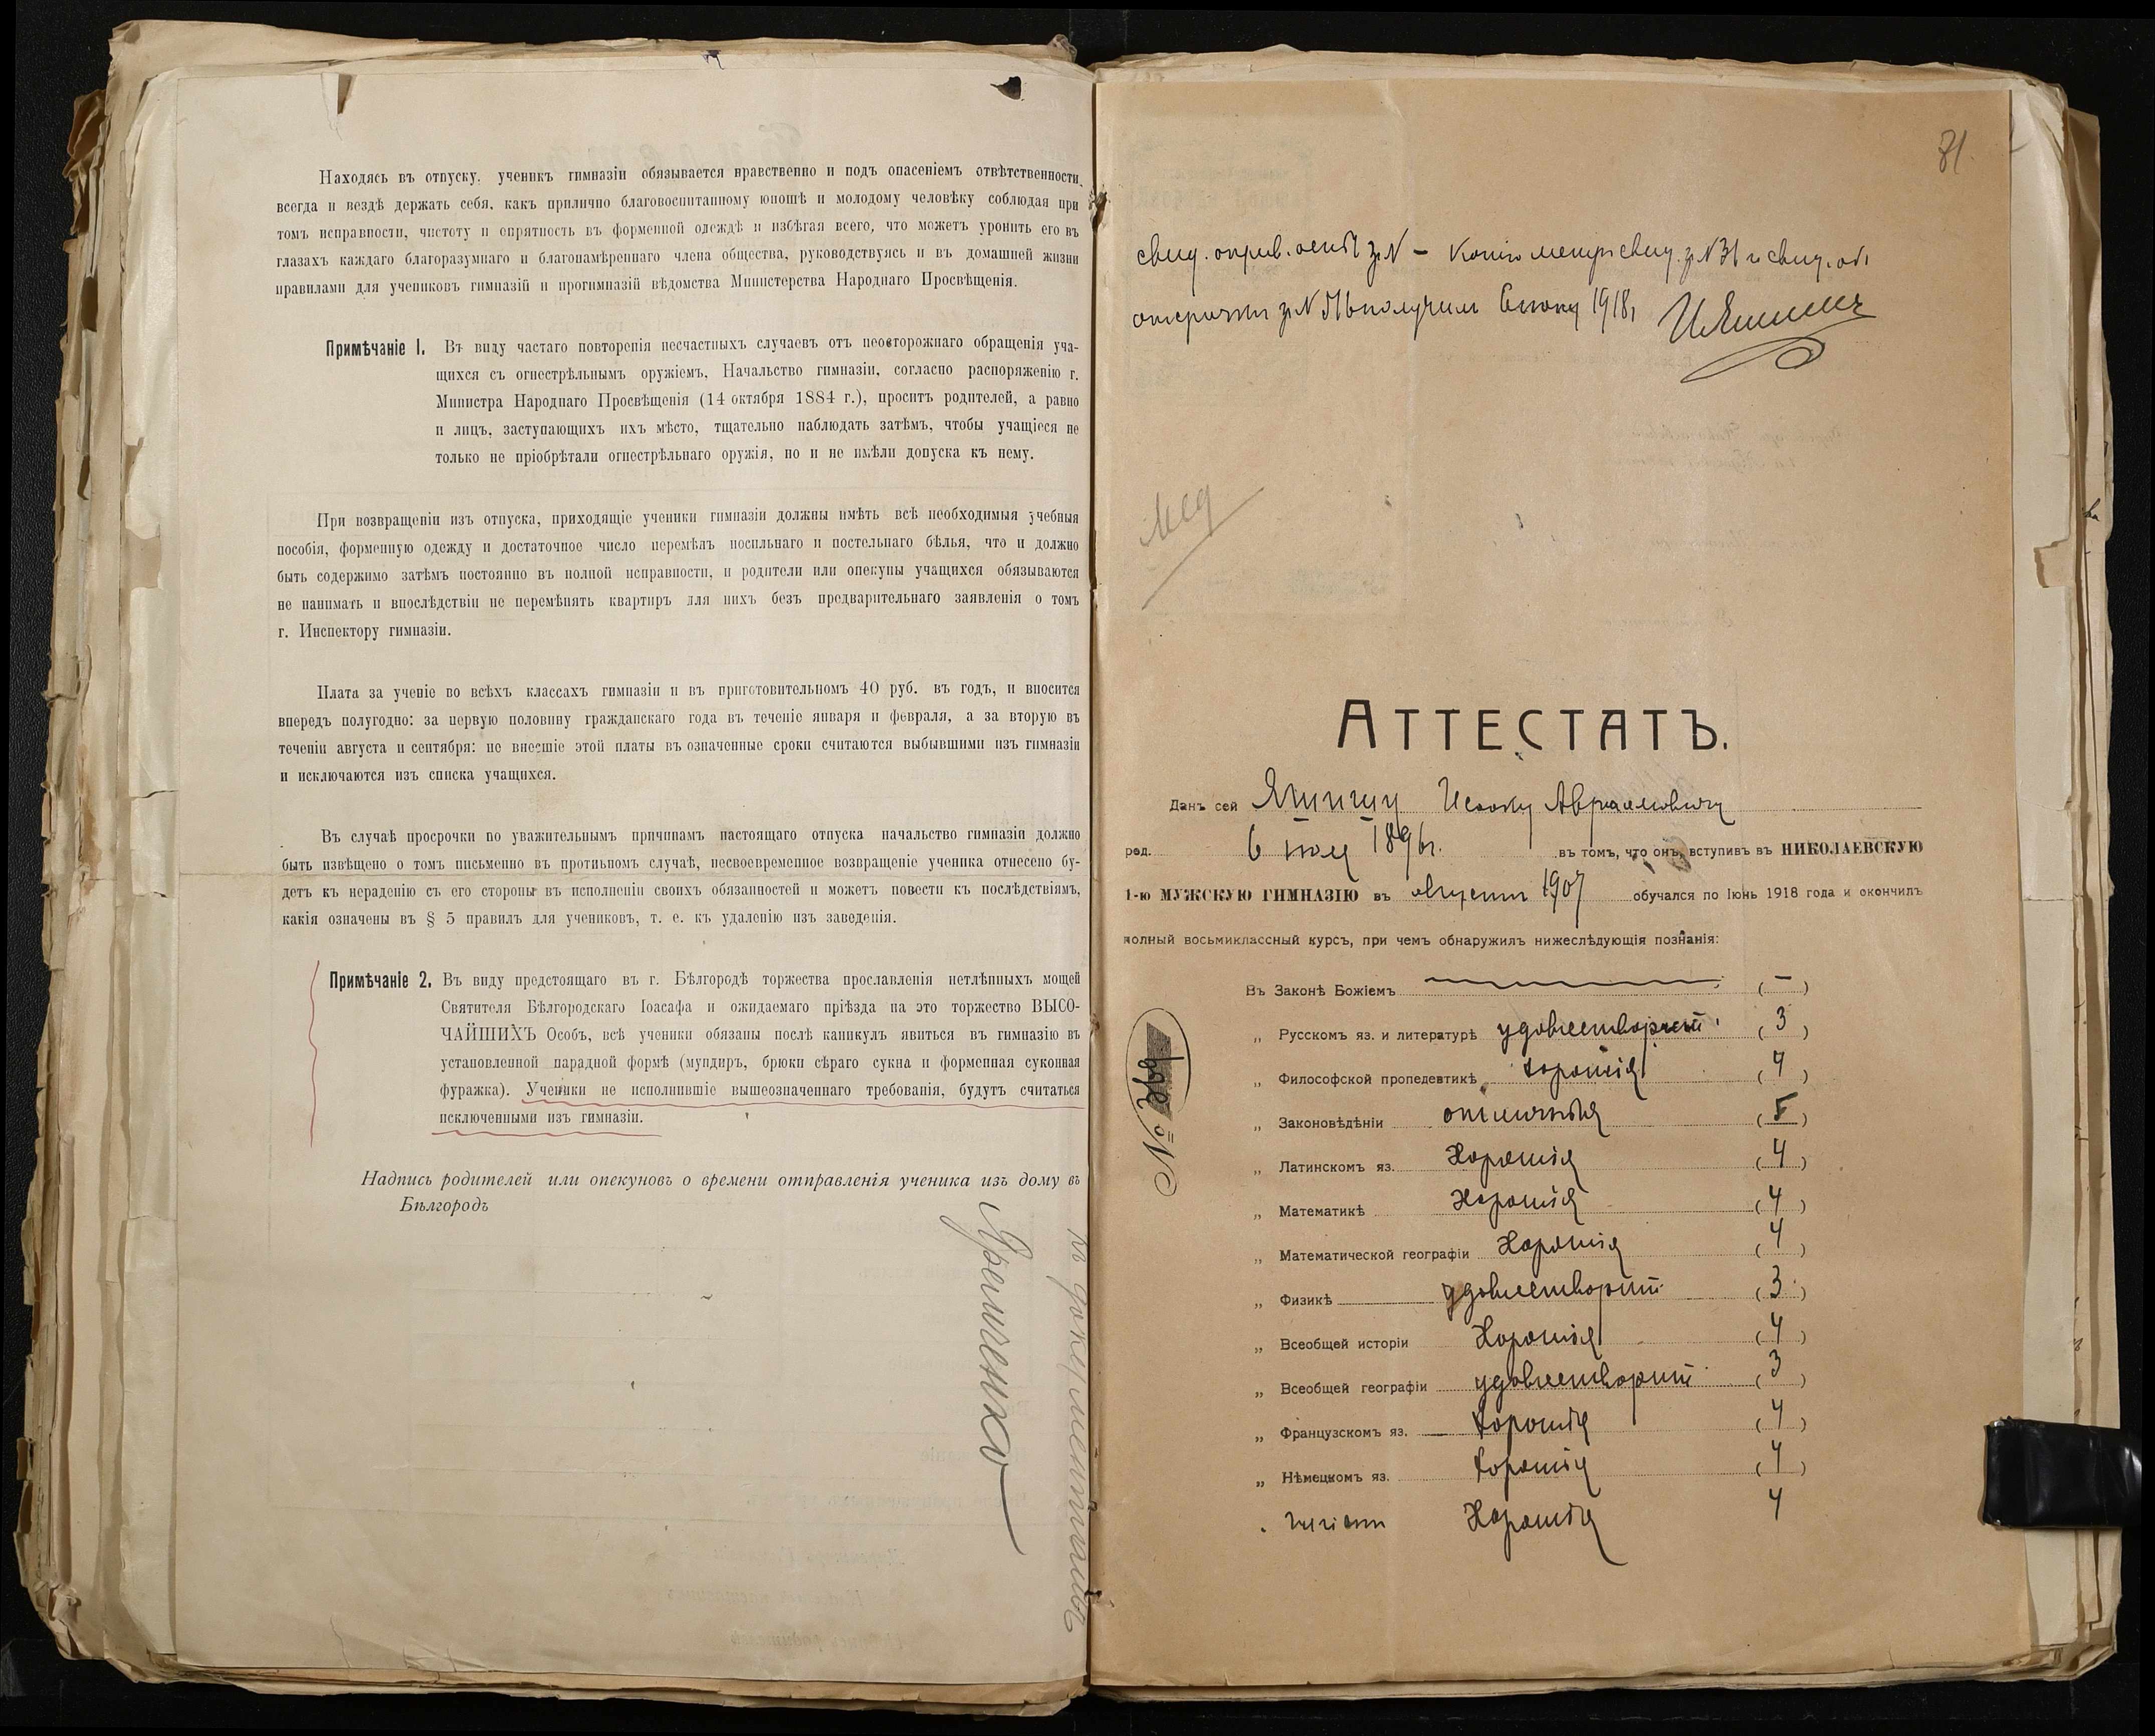 Находясь въ отпуску, ученикъ гимназіи обязывается нравственно и подъ опасеніемъ отвѣтственности,
всегда и вездѣ держать себя, какъ прилично благовоспитанному юношѣ и молодому человѣку соблюдая при
томъ исправности, чистоту и опрятность въ форменной одеждѣ и избѣгая всего, что можетъ уронить его въ
глазахъ каждаго благоразумнаго и благонамѣреннаго члена общества, руководствуясь и въ домашней жизни
правилами для учениковъ гимназій и прогимназій вѣдомства Министерства Народнаго Просвѣщенія.
Примѣчаніе I. Въ виду частаго повторенія несчастныхъ случаевъ отъ неосторожнаго обращенія уча-
щихся съ огнестрѣльнымъ оружіемъ, Начальство гимназіи, согласно распоряженію г.
Министра Народнаго Просвѣщенія (14 октября 1884 г.), проситъ родителей, а равно
и лицъ, заступающихъ ихъ мѣсто, тщательно наблюдать затѣмъ, чтобы учащіеся не
только не пріобрѣтали огнестрѣльнаго оружія, но и не имѣли допуска къ нему.
При возвращеніи изъ отпуска, приходящіе ученики гимназіи должны имѣть всѣ необходимыя учебныя
пособія, форменную одежду и достаточное число перемѣнъ носильнаго и постельнаго бѣлья, что и должно
быть содержимо затѣмъ постоянно въ полной исправности, и родители или опекуны учащихся обязываются
не нанимать и впослѣдствіи не перемѣнять квартиръ для нихъ безъ предварительнаго заявленія о томъ
г. Инспектору гимназіи.
Плата за ученіе во всѣхъ классахъ гимназіи и въ приготовительномъ 40 руб. въ годъ, и вносится
впередъ полугодно: за первую половину гражданскаго года въ теченіе января и февраля, а за вторую въ
теченіи августа и сентября: не внесшіе этой платы въ означенные сроки считаются выбывшими изъ гимназіи
и исключаются изъ списка учащихся.
Въ случаѣ просрочки по уважительнымъ причинамъ настоящаго отпуска начальство гимназіи должно
быть извѣщено о томъ письменно въ противномъ случаѣ, несвоевременное возвращеніе ученика отнесено бу-
детъ къ нерадѣнію съ его стороны въ исполненіи своихъ обязанностей и можетъ повести къ послѣдствіямъ,
какія означены въ § 5 правилъ для учениковъ, т. е. къ удаленію изъ заведенія.
Примѣчаніе 2. Въ виду предстоящаго въ г. Бѣлгородѣ торжества прославленія нетлѣнныхъ мощей
Святителя Бѣлгородскаго Іоасафа и ожидаемаго пріѣзда на это торжество ВЫСО-
ЧАЙШИХЪ Особъ, всѣ ученики обязаны послѣ каникулъ явиться въ гимназію въ
установленной парадной формѣ (мундиръ, брюки сѣраго сукна и форменная суконная
фуражка). Ученики не исполнившіе вышеозначеннаго требованія, будутъ считаться
исключенными изъ гимназіи.
Надпись родителей или опекуновъ о времени отправленія ученика изъ дому въ
Бѣлгородъ
къ документамъ
81.
свид. опрыв. оспѣ з. N – Копію метр. свид. з. N 31 и свид. об
отсрочкѣ з. N получилъ 6 1918
мед
АТТЕСТАТЪ.
Данъ сей Яшину Исааку Абрамовичу
род. 6 мая 1896 г. въ томъ, что онъ, вступивъ въ НИКОЛАЕВСКУЮ
1-ю МУЖСКУЮ ГИМНАЗІЮ въ августѣ 1907 обучался по Іюнь 1918 года и окончилъ
полный восьмиклассный курсъ, при чемъ обнаружилъ нижеслѣдующія познанія:
Въ Законѣ Божіемъ (—)
„ Русскомъ яз. и литературѣ удовлетворит. (3)
„ Философской пропедевтикѣ хорошія (4)
„ Законовѣдѣніи отличныя (5)
„ Латинскомъ яз. Хорошія (4)
„ Математикѣ Хорошія (4)
„ Математической географіи Хорошія (4)
„ Физикѣ удовлетворит. (3)
„ Всеобщей исторіи Хорошія (4)
„ Всеобщей географіи удовлетворит. (3)
„ Французскомъ яз. хорошія (4)
„ Нѣмецкомъ яз. хорошія (4)
„ Гигіенѣ Хорошія 4
№ 369